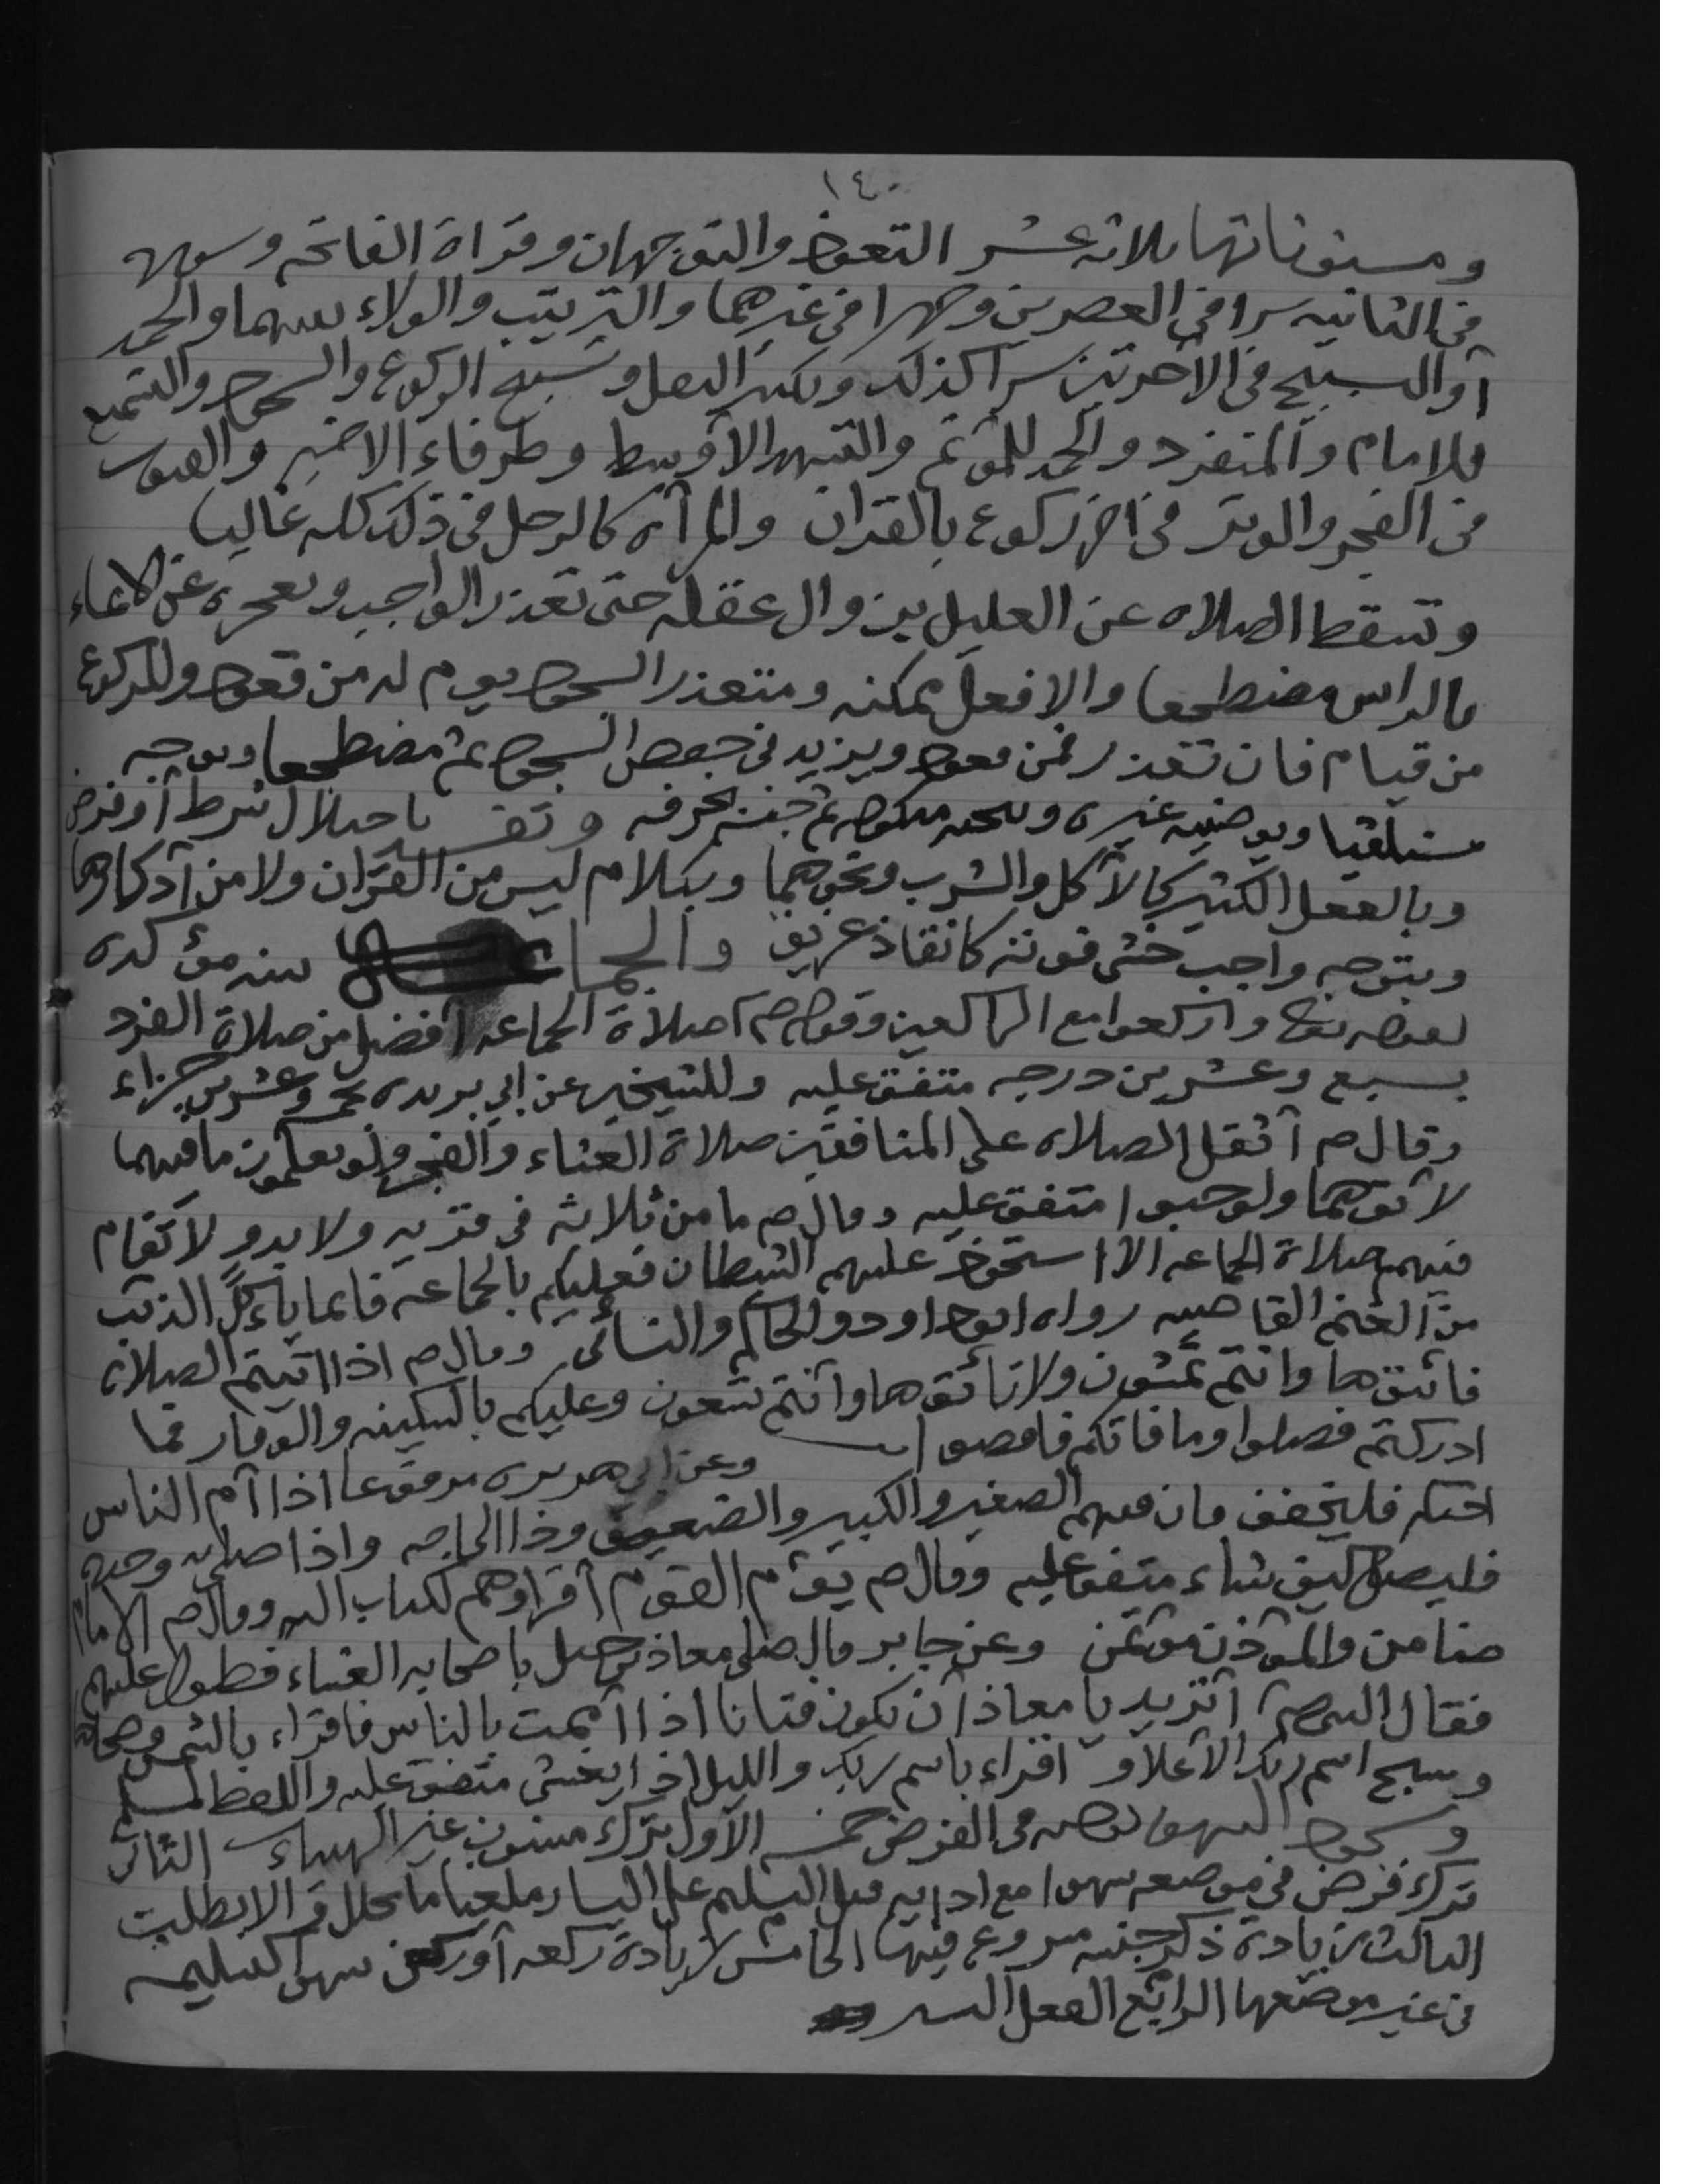 ١٤٠
ومسنوناتها ثلاثه عشر التعوذ والتوجهان وقراة الفاتحه وسوره
في الثانيه سرا في العصرين وجهرا في غيرهما والترتيب والولاء بينهما والحمد
أو التسبيح في الآخرتين سرا كذلك وتكبير النقل وتسبيح الركوع والسجود والتسميع
للامام والمنفرد والحمد للمؤتم والتشهد الأوسط وطرفاء الاخير والقنوت
في الفجر والوتر في اخر ركوع بالقران والمرأه كالرجل في ذلك كله غالبا
وتسقط الصلاه عن العليل بزوال عقله حتى تعذر الواجب وبعجزه عن الايماء
بالراس مضطجعا والا فعل ممكنه ومتعذر السجود يوم له من قعود وللركوع
من قيام فان تعذر فمن قعود ويزيد في خفض السجود ثم مضطجعا ويوجه
مستلقيا ويوضيه غيره وينجيه منكوحه ثم جنسه بخرقه وتفسد باختلال شرط أو فرض
وبالفعل الكثير كالأكل والشرب ونحوهما وبكلام ليس من القرآن ولا من أذكارها
وبتوجه واجب خشي فوته كانقاذ غريق والجماعه سنه مؤكده
لقوله تعالى واركعوا مع الراكعين وقوله صم صلاة الجماعه أفضل من صلاة الفرد
بسبع وعشرين درجه متفق عليه وللشيخين عن ابي بريده خمس وعشرين جزاء
وقال صم أثقل الصلاه على المنافقين صلاة العشاء والفجر ولو يعلمون ما فيهما
لأتوهما ولو حبوا متفق عليه وقال صم ما من ثلاثه في قريه ولا بدو لا تقام
فيهم صلاة الجماعه الا استحوذ عليهم الشيطان فعليكم بالجماعه فانما ياءكل الذئب
من الغنم القاصيه رواه ابو داود والحاكم والنسائى وقال صم اذا اتيتم الصلاه
فأتوها وانتم تمشون ولا تأتوها وأنتم تسعون وعليكم بالسكينه والوقار فما
ادركتم فصلوا وما فاتكم فاقضوا وعن ابي هريره مرفوعا اذا أم الناس
احدكم فليخفف فان فيهم الصغير والكبير والضعيف وذا الحاجه واذا صلى وحده
فليصل كيف شاء متفق عليه وقال صم يؤم القوم أقراوهم لكتاب الله وقال صم الامام
ضامن والمؤذن مؤتمن وعن جابر قال صلى معاذ بن جبل باصحابه العشاء فطول عليهم
فقال النبي صم أتريد يا معاذ أن تكون فتانا اذا أممت بالناس فاقراء بالشمس وضحاها
وسبح اسم ربك الأعلا و اقراء باسم ربك والليل اذا يغشى متفق عليه واللفظ لمسلم
وسجود السهو يوجبه في الفرض خمسه الأول ترك مسنون غير الهيئات الثاني
ترك فرض في موضعه سهوا مع ادايه قبل التسليم على اليسار ملغيا ما تخلل والا بطلت
الثالث زيادة ذكر جنسه مشروع فيها الخامس زيادة ركعه أو ركن سهوا كتسليمه
في غير موضعها الرابع الفعل اليسير